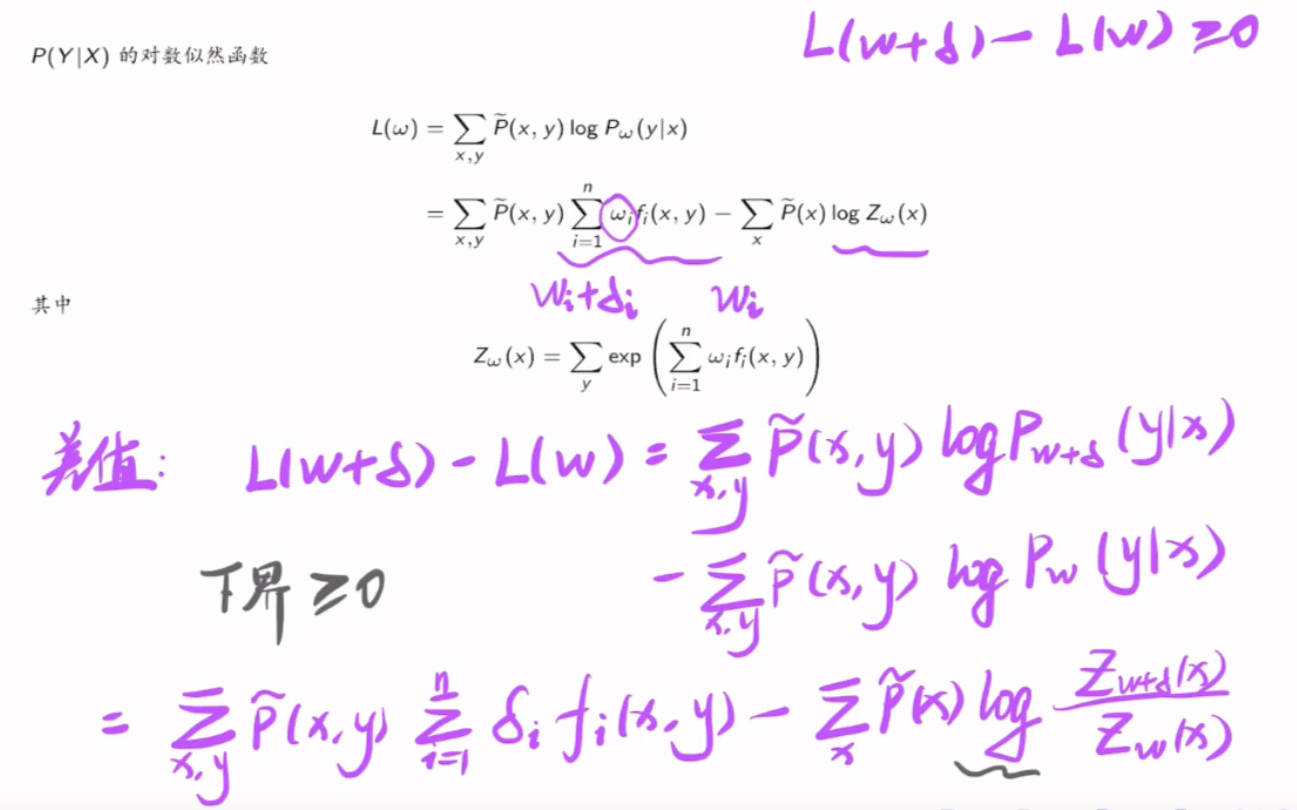 L(w+δ) - L(w) ≥ 0
P(Y|X) 的对数似然函数
L(ω) = ∑_{x,y} P̃(x, y) log P_ω(y|x)
= ∑_{x,y} P̃(x, y) ∑_{i=1}^{n} ω_i f_i(x, y) − ∑_x P̃(x) log Z_ω(x)
w_i+δ_i w_i
其中
Z_ω(x) = ∑_y exp (∑_{i=1}^{n} ω_i f_i(x, y))
差值: L(w+δ) - L(w) = ∑_{x,y} P̃(x,y) log P_{w+δ}(y|x)
下界 ≥ 0 - ∑_{x,y} P̃(x,y) log P_w(y|x)
= ∑_{x,y} P̃(x,y) ∑_{i=1}^{n} δ_i f_i(x,y) - ∑_x P̃(x) log Z_{w+δ}(x)/Z_w(x)